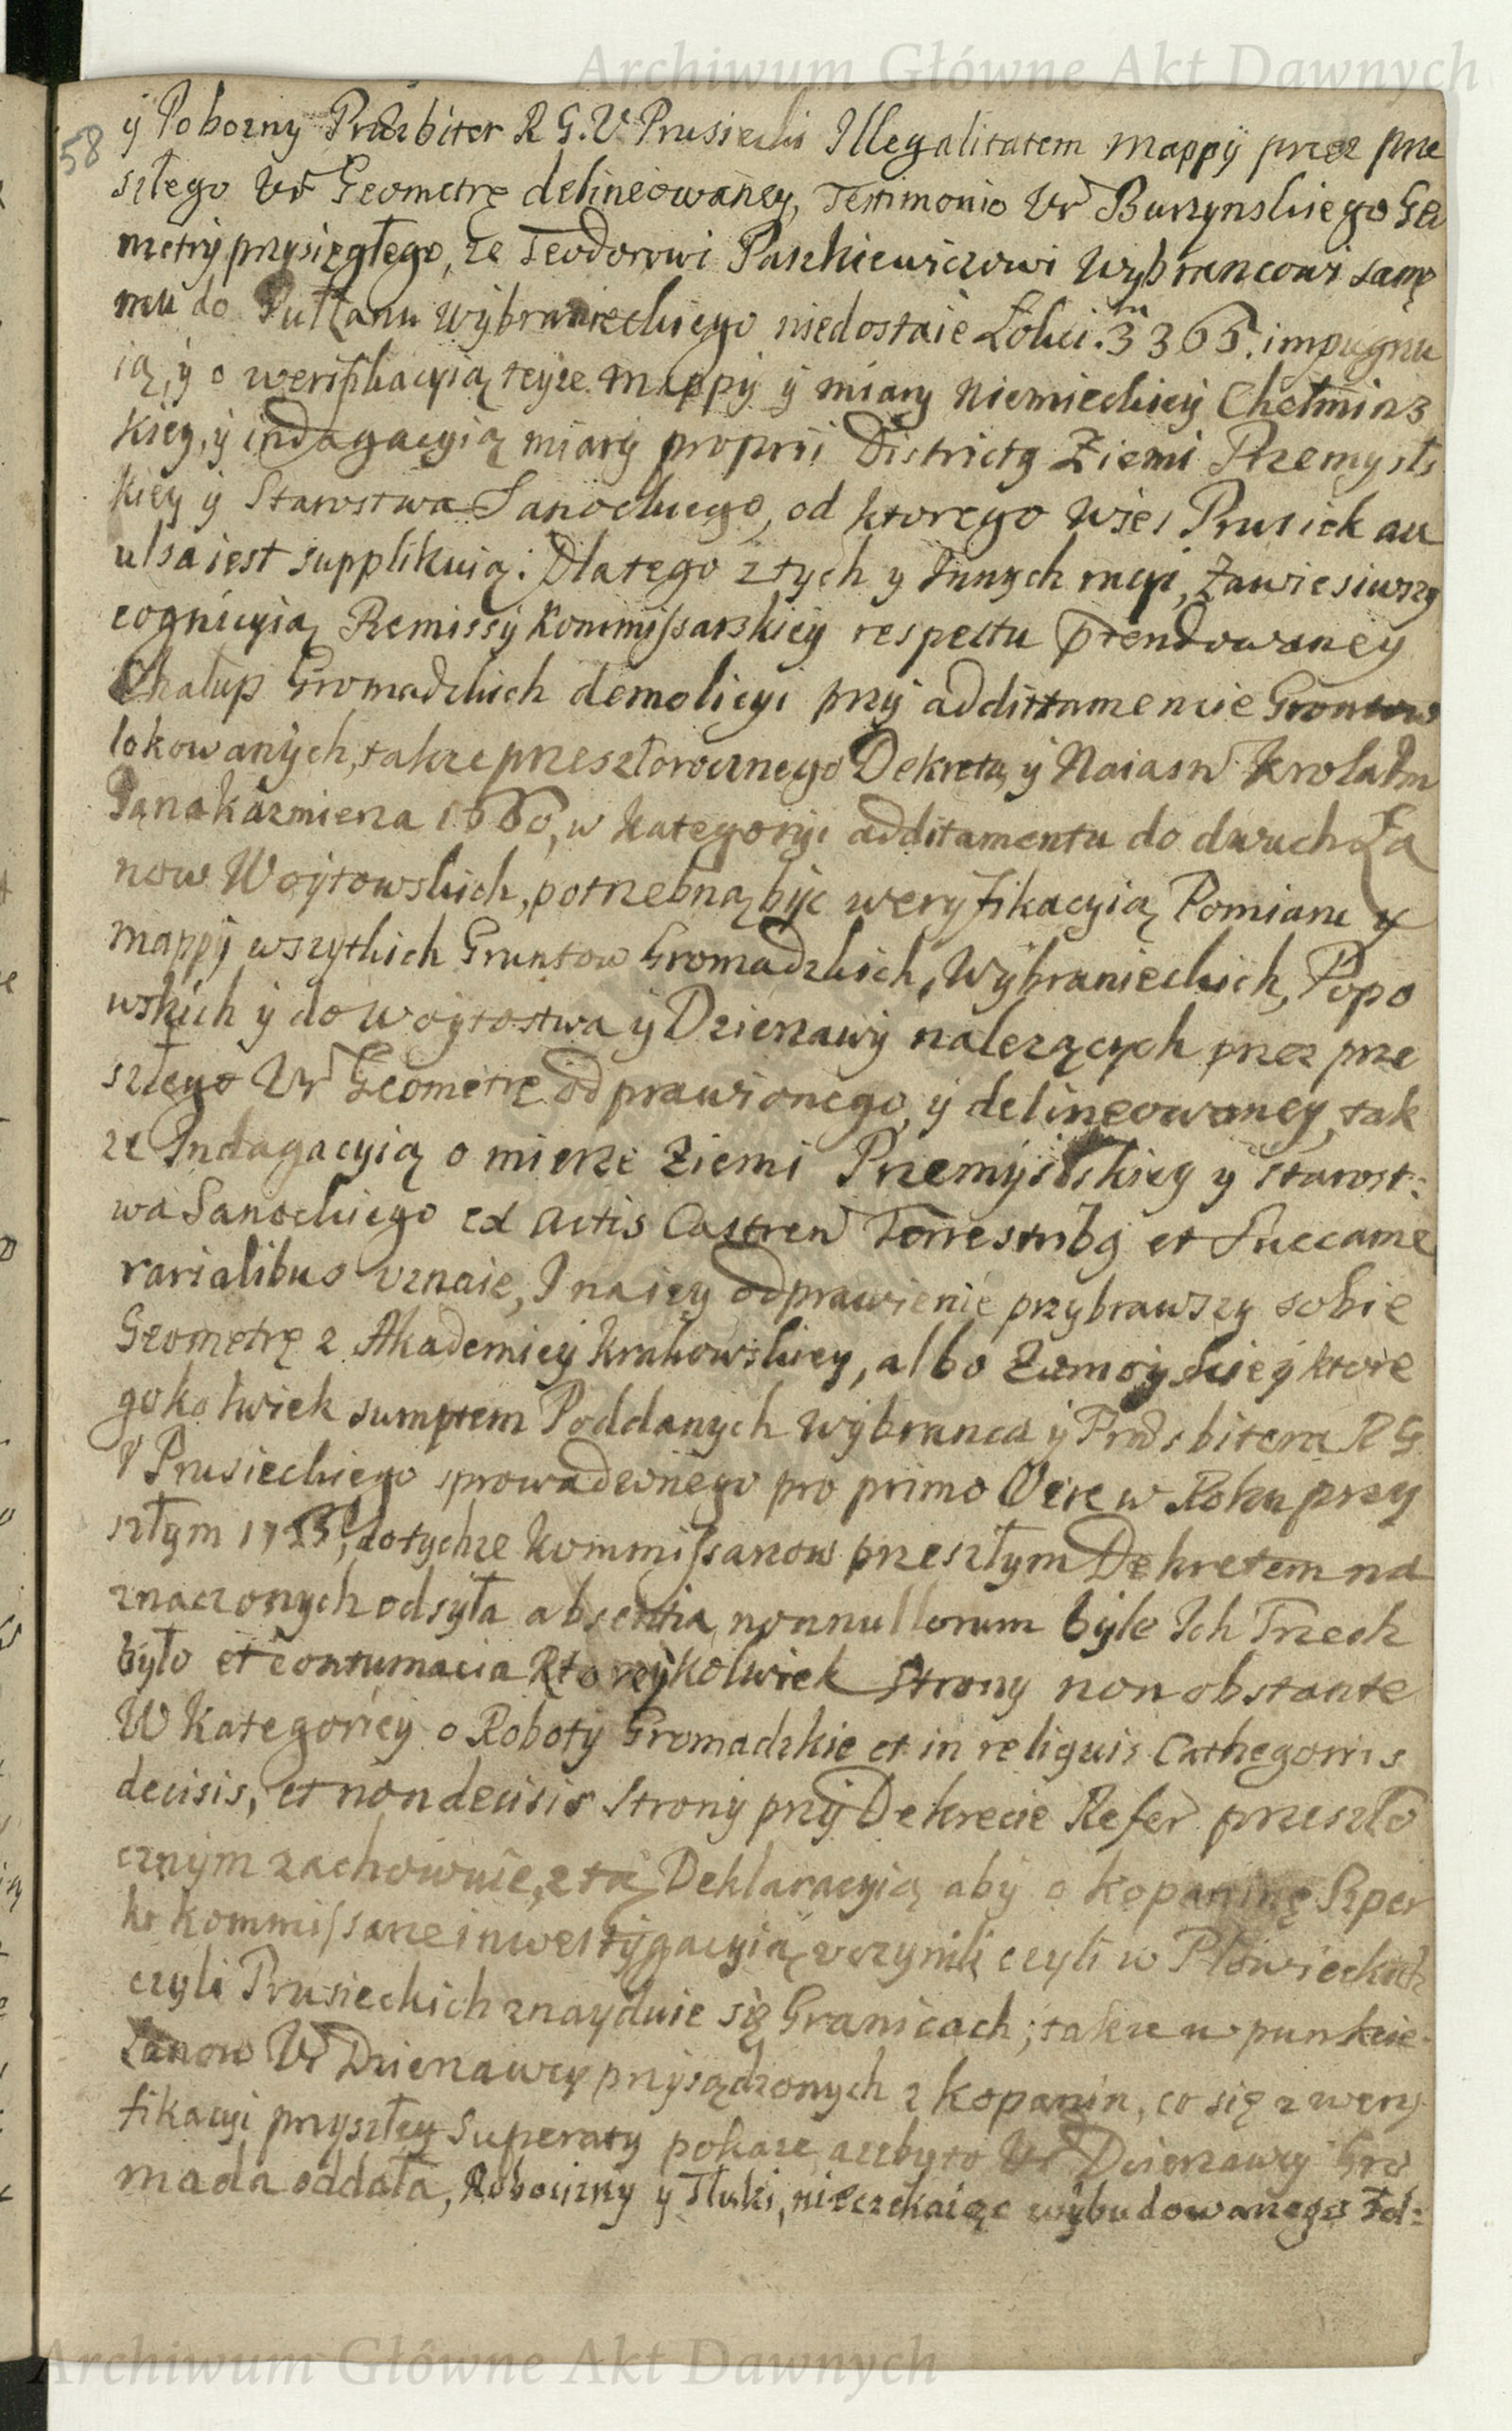 Archiwum Główne Akt Dawnych
58
ÿ Poborny Præzbiter R G. V. Prusiecki Illegalitatem mappÿ przez prze
szłego Ur Geometrę delineowaney, Testimonio Ur Burzynskiego Geo
metrÿ przysięgłego, ze Teodorowi Paszkiewiczowi Wÿbrancowi same
mu do Pułłanu Wÿbranieckiego niedostaie Łokci. 3365. impugnu
ią, ÿ o werifikacyią teyze mappÿ ÿ miary Niemieckieÿ Chełmins
kiey, ÿ indagacyią miarÿ proprii Districtg Ziemi Przemysls
kiey ÿ Starostwa Sanockiego, od ktorego wies Prusiek au
ulsa iest supplikuią: Dlatego z tych y Innych racyi, Zawiesiwszy
cognicyią Remissÿ Kommissarskieÿ respectu prtendowaney
Chałup Gromadzkich demolicyi przÿ addittamencie Grontow
lokowanÿch, takze przeszłorocznego Dekretu, ÿ Naiasn Krola Im
Jana Kazmierza 1660, w kategorÿi additamentu do dwuch Ła
now Woÿtowskich, potrzebną bÿc weryfikacyią Pomiaru y
mappÿ wszytkich Gruntow Gromadzkich, Wÿbranieckich, Popo
wskich ÿ do Woytostwa ÿ Dzierzawÿ nalezących przez prze
szłego Ur Geometrę odprawionego, ÿ delineowaney, tak
ze Indagacyią o mierze Ziemi Przemÿslskiey y Starost:
wa Sanockiego ex Actis Castren Terrestribg et Succame
rarialibus uznaie, I na iey odprawienie przybrawszy sobie
Geometrę z Akademieÿ Krakowskiey, albo Zamoÿskieÿ ktore
gokolwiek sumptem Poddanych Wÿbranca ÿ Prædsbitera R G
V Prusieckiego sprowadzonego pro primo Vere w Roku przy
szłym dotychze Kommissarzow przeszłym Dekretem na
znaczonych odsyła absentia nonnullorum bÿle Ich Trzech
bÿło et contumacia Ktoreÿkolwiek Strony non obstante
W Kategorieÿ o Robotÿ Gromadzkie et in reliquis Cathegoriis
decisis, et non decisis Stronÿ przÿ Dekrecie Refer przeszło
cznÿm zachowuie, z tą Deklaracyią abÿ o kopaninę Szper
ke Kommissarze inwestÿgacyią uczynili czyli w Płowieckich
czyli Prusieckich znayduie się Granicach; takze w punkcie
Łanow Ur Dzierzawcy przysądzonych z kopanin, co się z wery
fikacyi przyszłey Superaty pokaze, azebyto Ur Dzierzawcy Gro
mada oddała, Robocizny y Tłuki, nieczekaiąc wybudowanego Fol:
Archiwum Główne Akt Dawnych